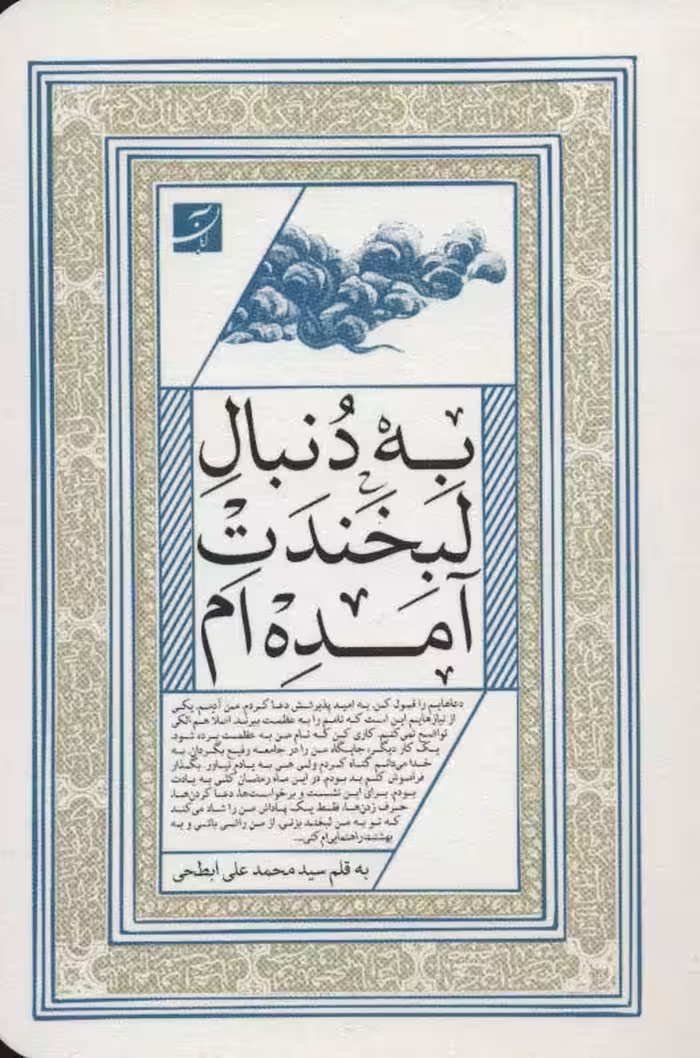 به دُنبالِ
لَبخَندَت
آمَده‌ِام
دعاهایم را قبول کن. به امید پذیرشش دعا کردم. من آدمم. یکی
از نیازهایم این است که نامم را به عظمت ببرند. اصلا هم الکی
تواضع نمی‌کنم. کاری کن که نام من به عظمت برده شود.
یک کار دیگر: جایگاه من را در جامعه رفیع بگردان. به
خدا می‌دانم گناه کردم ولی هی به یادم نیاور. بگذار
فراموش کنم بد بودم. در این ماه رمضان کلی به یادت
بودم. برای این نشست و برخواست‌ها، دعا کردن‌ها،
حرف زدن‌ها، فقط یک پاداش من را شاد می‌کند
که تو به من لبخند بزنی. از من راضی باشی و به
بهشتت راهنمایی‌ام کنی...
به قلم سید محمد علی ابطحی